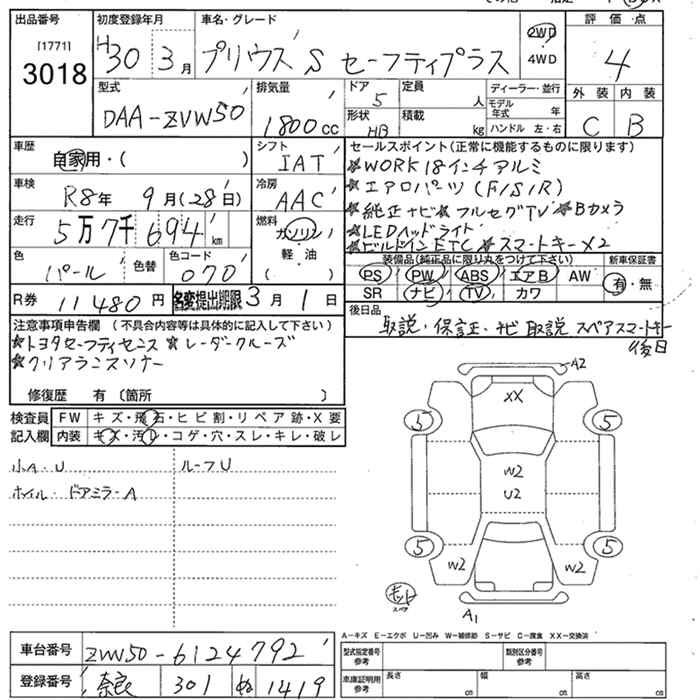 出品番号 初度登録年月 車名・グレード 評価点
[1771]
3018 H30 3月 プリウス S セーフティプラス 2WD 4WD 4
型式 排気量 ドア 定員 ディーラー・並行 外装 内装
DAA-ZVW50 1800cc 5 人 モデル年式 年
形状 積載 ハンドル 左・右 C B
HB kg
車歴 シフト セールスポイント(正常に機能するものに限ります)
自家用・( ) IAT ★WORK 18インチアルミ
車検 冷房 ★エアロパーツ(F/S/R)
R8年 9月(28日) AAC ★純正ナビ★フルセグTV ★Bカメラ
走行 燃料 ★LEDヘッドライト
5万7千694km ガソリン ★ビルドインETC★スマートキー×2
色 色替 色コード 軽・油 装備品(純正品に限り丸をつけて下さい) 新車保証書
パール 070 ( ) PS PW ABS エアB AW 有・無
R券 11480円 名変提出期限 3月1日 SR ナビ TV カワ
後日品
注意事項申告欄(不具合内容等は具体的に記入して下さい) 取説・保証・ナビ取説 スペアスマートキー
★トヨタセーフティセンス★レーダークルーズ 後日
★クリアランスソナー
修復歴 有(箇所 )
検査員 FW キズ・飛石・ヒビ割・リペア跡・X要
記入欄 内装 キズ・汚レ・コゲ・穴・スレ・キレ・破レ
小A・U ルーフU
ホイル・ドアミラーA
A2
XX
5 5
W2
U2
5 5
W2 W2
A1
A-キズ E-エクボ U-凹み W-補修跡 S-サビ C-腐食 XX-交換済
車台番号 ZVW50-6124792 型式指定番号 参考 類別区分番号 参考
登録番号 奈良 301 ぬ 1419 車庫証明用 参考 長さ cm 幅 cm 高さ cm